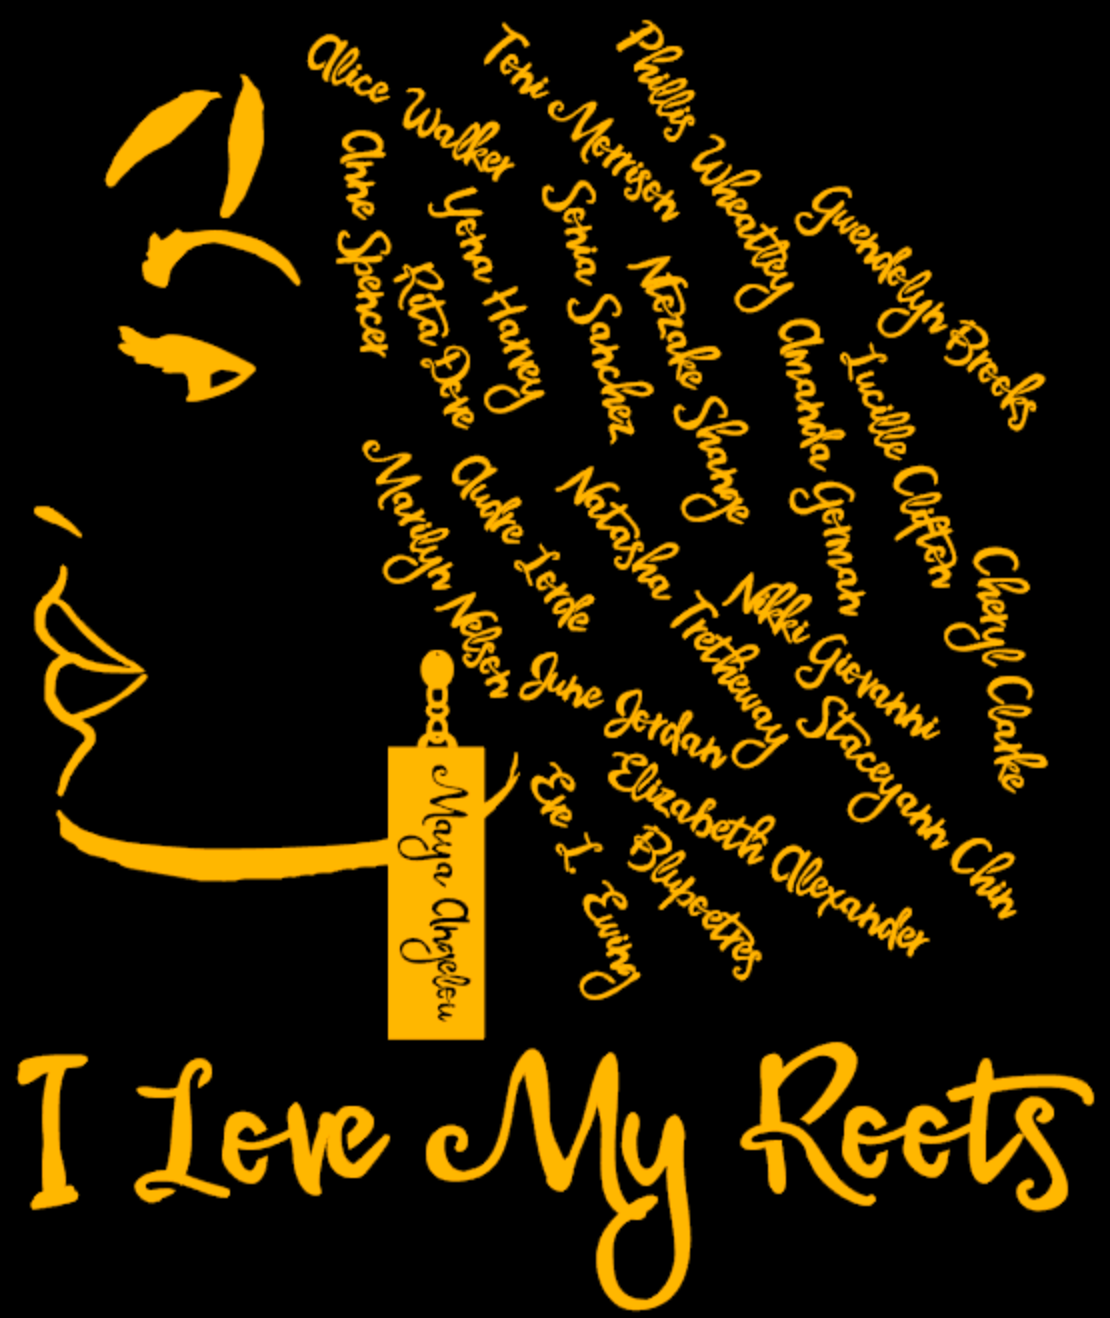 Alice Walker
Toni Morrison
Phillis Wheatley
Gwendolyn Brooks
Anne Spencer
Yona Harvey
Sonia Sanchez
Rita Dove
Ntozake Shange
Amanda Gorman
Lucille Clifton
Marilyn Nelson
Audre Lorde
Natasha Tretheway
Nikki Giovanni
Cheryl Clarke
June Jordan
Staceyann Chin
Elizabeth Alexander
Eve L. Ewing
Blupoetres
Maya Angelou
I Love My Roots